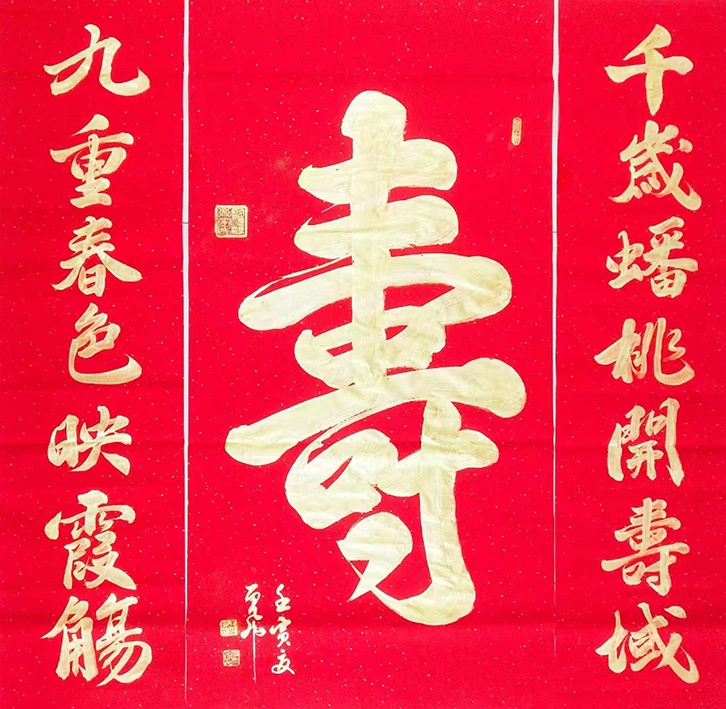 千歲蟠桃開壽域
壽
壬寅夏
九重春色映霞觴